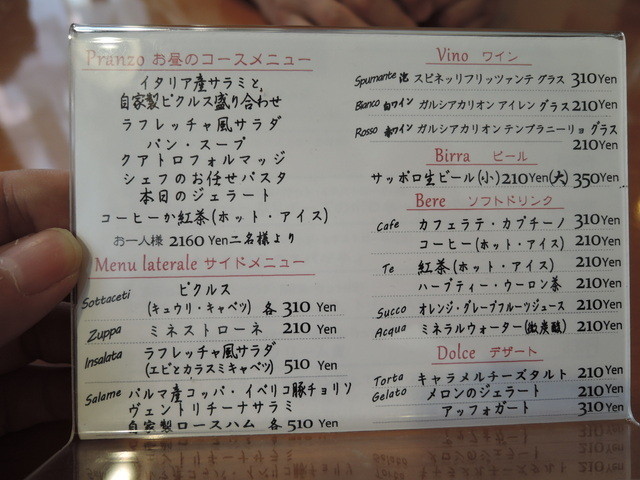 Pranzo お昼のコースメニュー
イタリア産サラミと、
自家製ピクルス盛り合わせ
ラフレッチャ風サラダ
パン・スープ
クアトロフォルマッジ
シェフのお任せパスタ
本日のジェラート
コーヒーか紅茶(ホット・アイス)
お一人様 2160 Yen二名様より
Menu laterale サイドメニュー
Sottaceti ピクルス
(キュウリ・キャベツ) 各 310 Yen
Zuppa ミネストローネ 210 Yen
Insalata ラフレッチャ風サラダ
(エビとカラスミキャベツ) 510 Yen
Salame パルマ産コッパ・イベリコ豚チョリソ
ヴェントリチーナサラミ
自家製ロースハム 各 510 Yen
Vino ワイン
Spumante 泡 スピネッリフリッツァンテ グラス 310 Yen
Bianco 白ワイン ガルシアカリオン アイレン グラス 210 Yen
Rosso 赤ワイン ガルシアカリオン テンプラニーリョ グラス
210 Yen
Birra ビール
サッポロ生ビール(小) 210 Yen (大) 350 Yen
Bere ソフトドリンク
Cafe カフェラテ・カプチーノ 310 Yen
コーヒー(ホット・アイス) 210 Yen
Te 紅茶(ホット・アイス) 210 Yen
ハーブティー・ウーロン茶 210 Yen
Succo オレンジ・グレープフルーツジュース 210 Yen
Acqua ミネラルウォーター(微炭酸) 210 Yen
Dolce デザート
Torta キャラメルチーズタルト 210 Yen
Gelato メロンのジェラート 210 Yen
アッフォガート 310 Yen